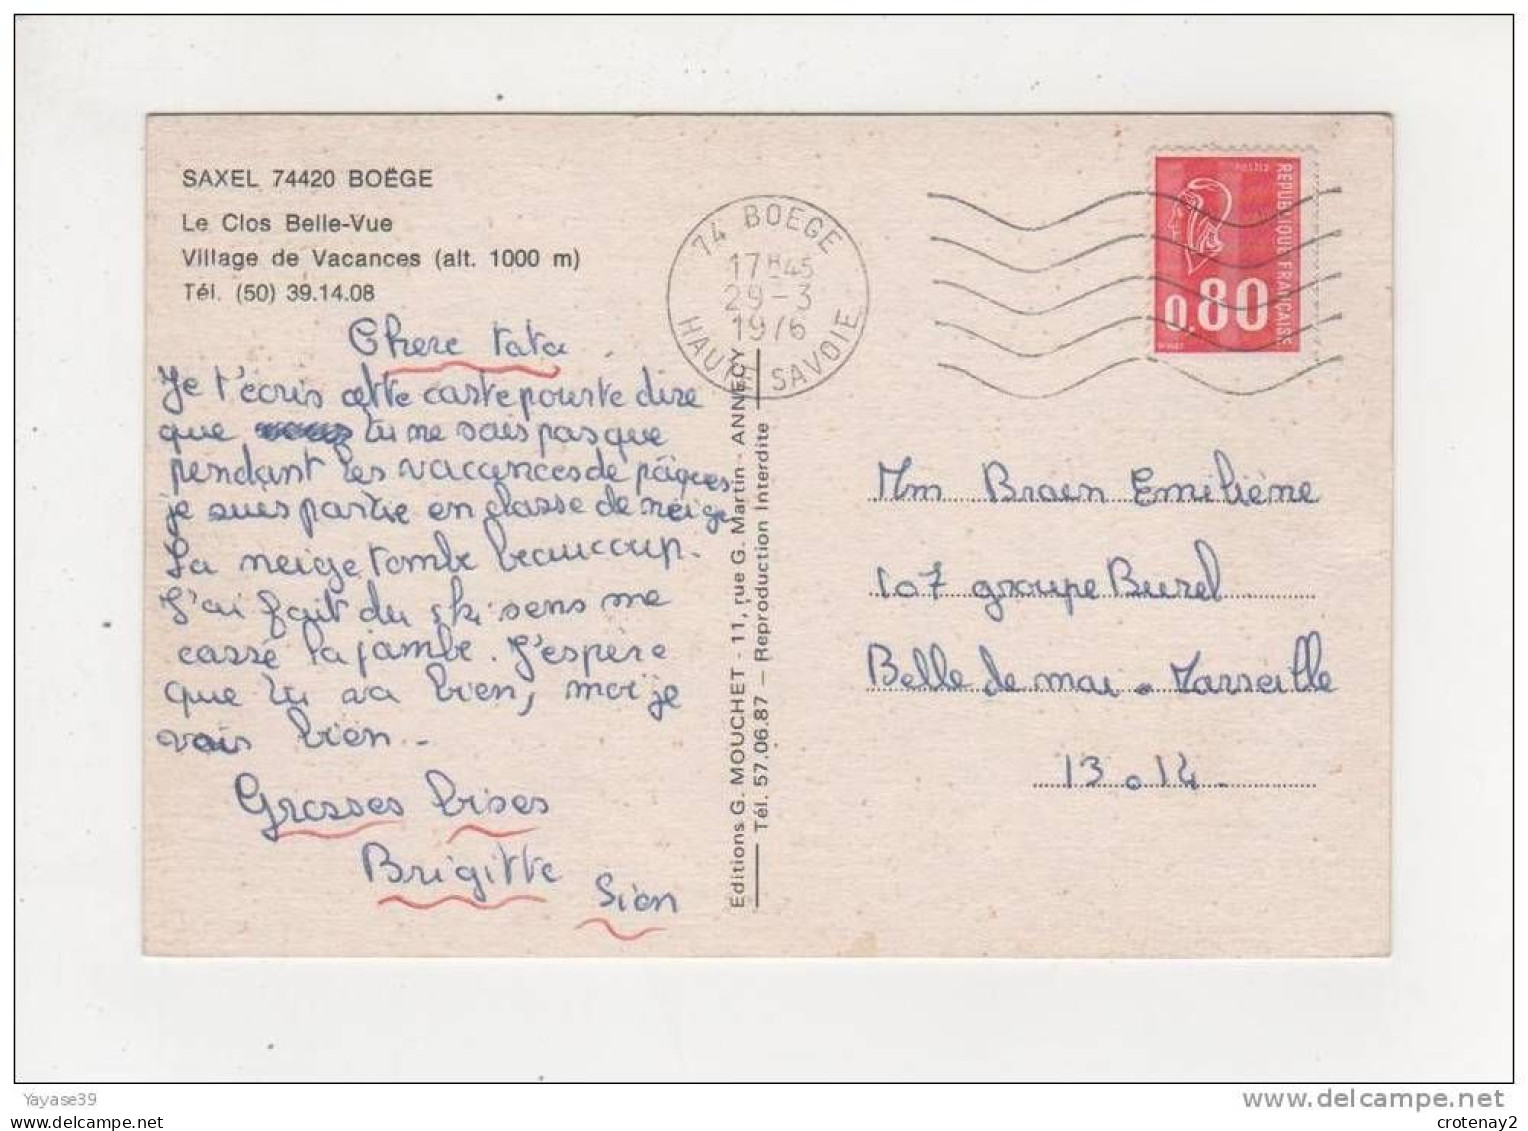 SAXEL 74420 BOËGE
Le Clos Belle-Vue
Village de Vacances (alt. 1000 m)
Tél. (50) 39.14.08
Chere tata
Je t'écris cette carte pour te dire
que tu ne sais pas que
pendant les vacances de pâques
je suis partie en classe de neige
La neige tombe beaucoup.
J'ai fait du ski sens me
cassé la jambe. J'espère
que tu va bien, moi je
vais bien -
Grosses bises
Brigitte
Sion
Editions G. MOUCHET - 11, rue G. Martin - ANNECY
Tél. 57.06.87 — Reproduction Interdite
74 BOEGE
17H45
29-3
1976
HAUTE SAVOIE
REPUBLIQUE FRANÇAISE
POSTES
0,80
Mm Braen Emiliène
107 groupe Burel
Belle de mai - Marseille
13 014
Yayase39
www.delcampe.net
crotenay2